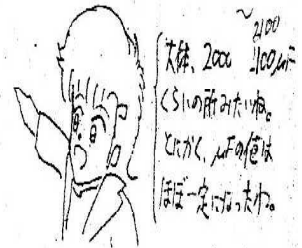 大体、2000～2100μF
くらいの所みたいね。
とにかく、μFの値は
ほぼ一定になったわ。